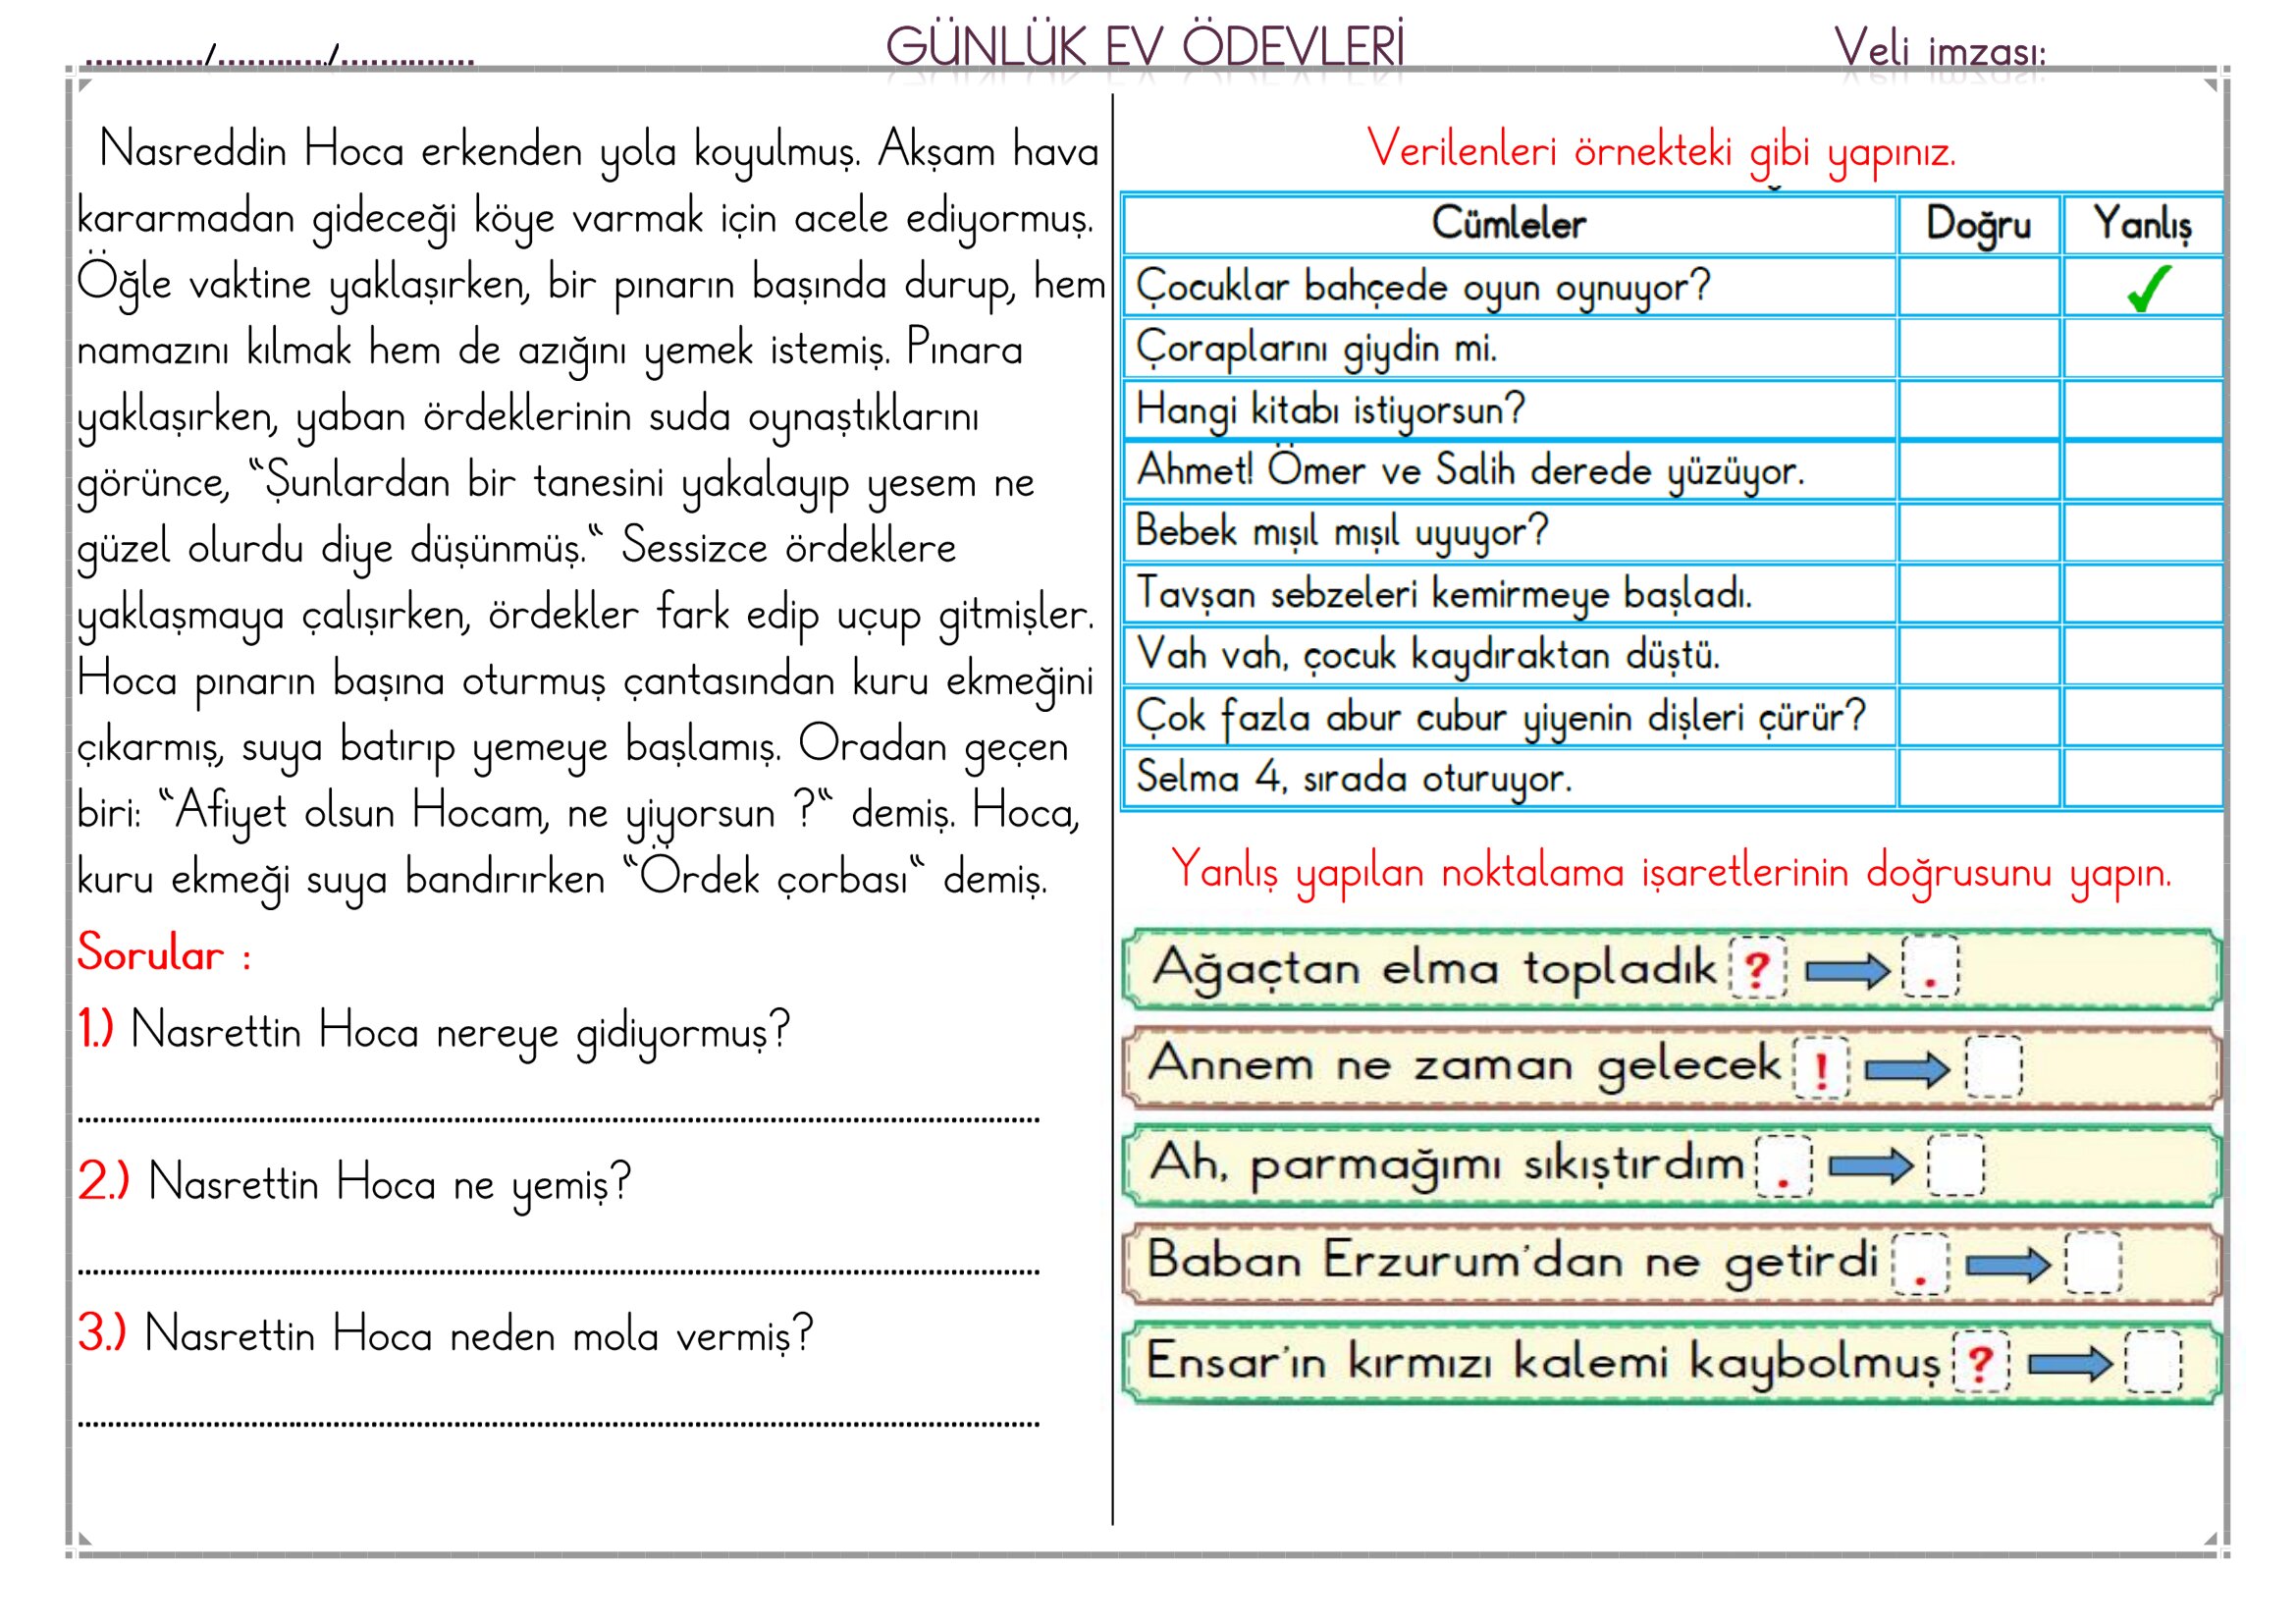 ............/.........../..............
GÜNLÜK EV ÖDEVLERİ
Veli imzası:
Nasreddin Hoca erkenden yola koyulmuş. Akşam hava
kararmadan gideceği köye varmak için acele ediyormuş.
Öğle vaktine yaklaşırken, bir pınarın başında durup, hem
namazını kılmak hem de azığını yemek istemiş. Pınara
yaklaşırken, yaban ördeklerinin suda oynaştıklarını
görünce, “Şunlardan bir tanesini yakalayıp yesem ne
güzel olurdu diye düşünmüş.“ Sessizce ördeklere
yaklaşmaya çalışırken, ördekler fark edip uçup gitmişler.
Hoca pınarın başına oturmuş çantasından kuru ekmeğini
çıkarmış, suya batırıp yemeye başlamış. Oradan geçen
biri: “Afiyet olsun Hocam, ne yiyorsun ?“ demiş. Hoca,
kuru ekmeği suya bandırırken “Ördek çorbası“ demiş.
Sorular :
1.) Nasrettin Hoca nereye gidiyormuş?
2.) Nasrettin Hoca ne yemiş?
3.) Nasrettin Hoca neden mola vermiş?
Verilenleri örnekteki gibi yapınız.
Cümleler Doğru Yanlış
Çocuklar bahçede oyun oynuyor? ✓
Çoraplarını giydin mi.
Hangi kitabı istiyorsun?
Ahmet! Ömer ve Salih derede yüzüyor.
Bebek mışıl mışıl uyuyor?
Tavşan sebzeleri kemirmeye başladı.
Vah vah, çocuk kaydıraktan düştü.
Çok fazla abur cubur yiyenin dişleri çürür?
Selma 4, sırada oturuyor.
Yanlış yapılan noktalama işaretlerinin doğrusunu yapın.
Ağaçtan elma topladık ? .
Annem ne zaman gelecek !
Ah, parmağımı sıkıştırdım .
Baban Erzurum'dan ne getirdi .
Ensar'ın kırmızı kalemi kaybolmuş ?